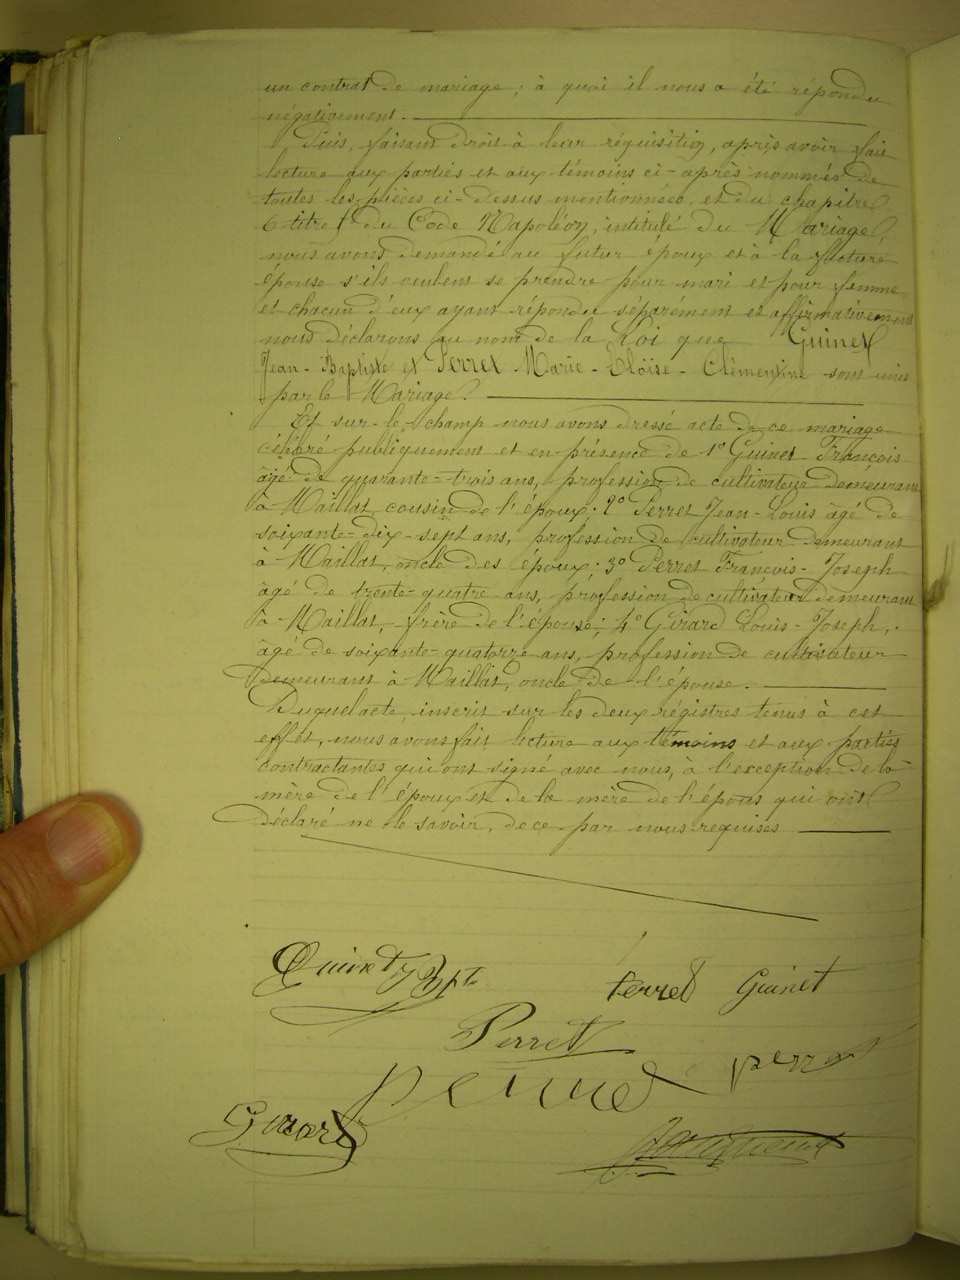 un contrat de mariage ; à quoi il nous a été répondu
négativement.
Puis, faisant droit à leur réquisition, après avoir fait
lecture aux parties et aux témoins ci-après nommés de
toutes les pièces ci-dessus mentionnées, et du chapitre
6 titre du Code Napoléon, intitulé du Mariage,
nous avons demandé au futur époux et à la future
épouse s'ils veulent se prendre pour mari et pour femme
et chacun d'eux ayant répondu séparément et affirmativement
nous déclarons au nom de la Loi que Guinet
Jean-Baptiste et Perret Marie-Eloïse-Clémentine sont unis
par le Mariage.
Et sur-le-champ nous avons dressé acte de ce mariage
célébré publiquement et en présence de 1° Guinet François
âgé de quarante-trois ans, profession de cultivateur demeurant
à Maillat, cousin de l'époux ; 2° Perret Jean-Louis âgé de
soixante-dix-sept ans, profession de cultivateur demeurant
à Maillat, oncle des époux ; 3° Perret François-Joseph
âgé de trente-quatre ans, profession de cultivateur demeurant
à Maillat, frère de l'épouse ; 4° Girard Louis-Joseph,
âgé de soixante-quatorze ans, profession de cultivateur
demeurant à Maillat, oncle de l'épouse.
Duquel acte, inscrit sur les deux régistres tenus à cet
effet, nous avons fait lecture aux témoins et aux parties
contractantes qui ont signé avec nous, à l'exception de la
mère de l'époux et de la mère de l'épouse qui ont
déclaré ne le savoir, de ce par nous requises
Guinet J Bpte Perret Guinet
Perret
Perret Perret
Girard